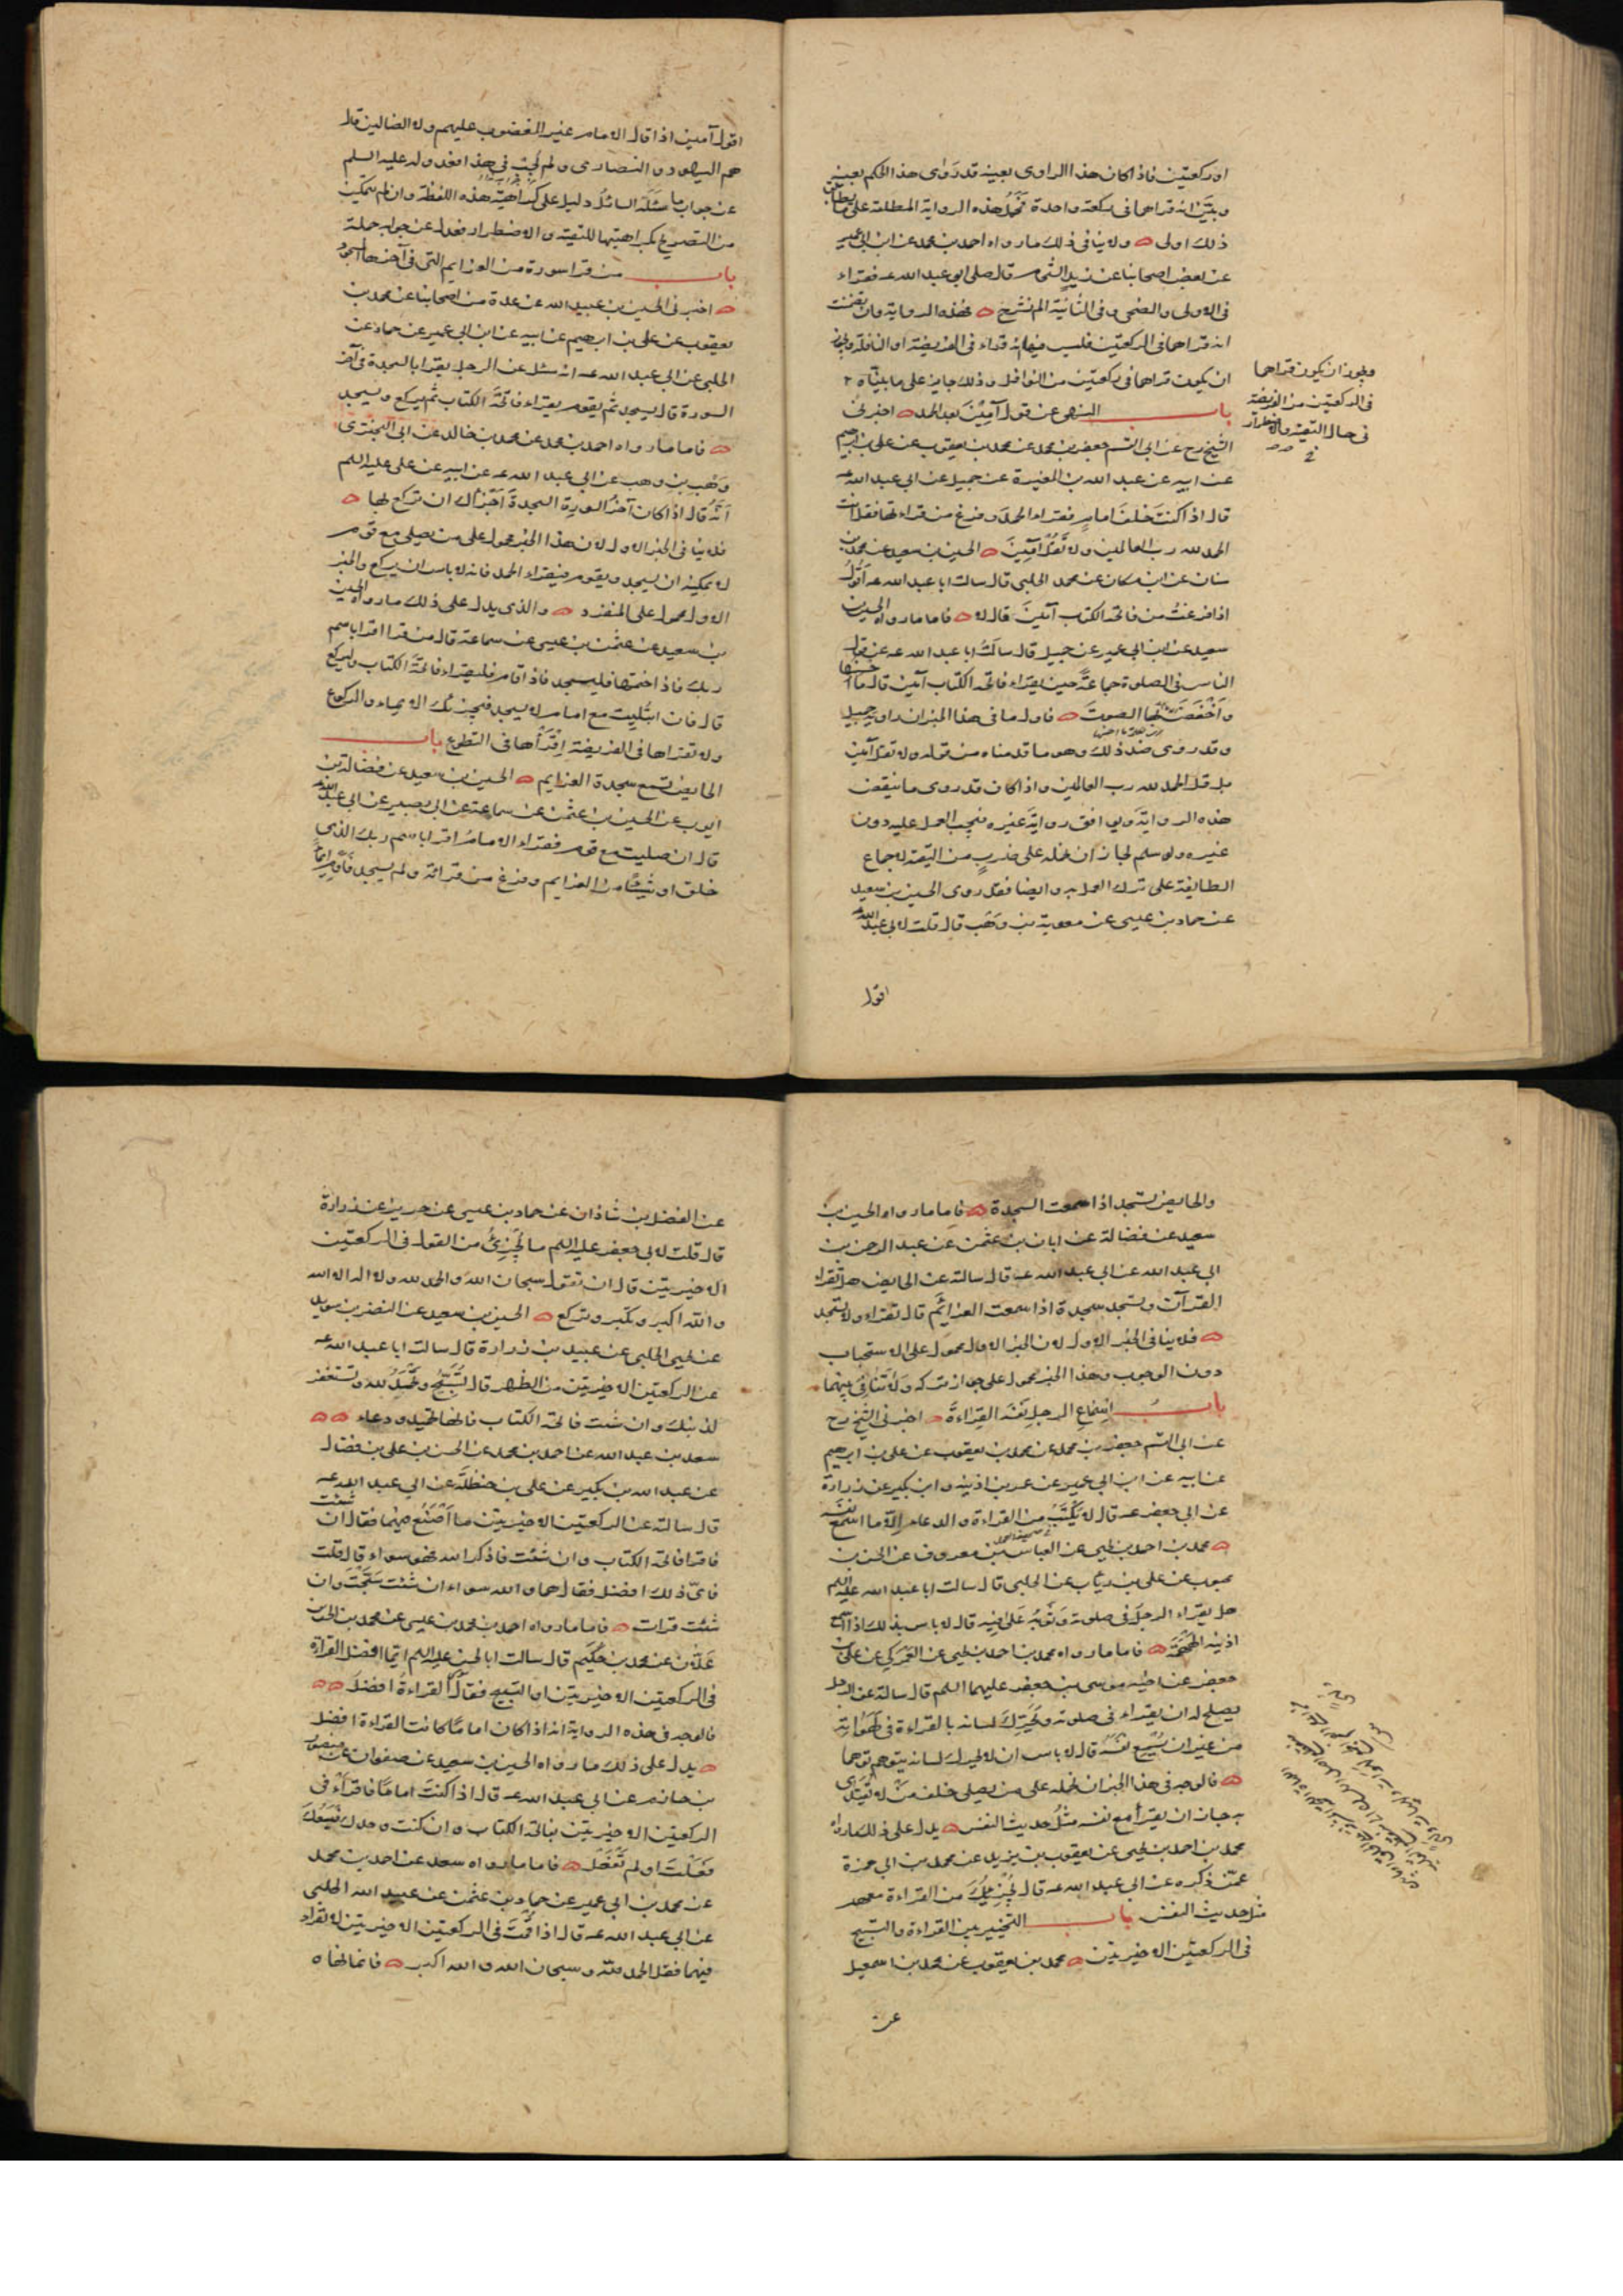 او ركعتين فاذا كان هذا الراوى بعينه قد روى هذا الحكم بعينه
وبيّن انه قراهما فى ركعة واحدة تحمل هذه الرواية المطلقة على ما يطابق
ذلك اولى ولا ينافى ذلك ما رواه احمد بن محمد عن ابن ابى عمير
عن بعض اصحابنا عن زيد الشحام قال صلى ابو عبد الله عه فقراء
فى الاولى والضحى وفى الثانية الم نشرح فهذه الرواية وان تضمنت
انه قراهما فى الركعتين فليس فيها انه قراء فى الفريضة او النافلة ويجوز
ان يكون قراهما فى ركعتين من النوافل وذلك جايز على ما بيناه
باب النهى عن قول آمين بعد الحمد اخبرنى
الشيخ رح عن ابى القسم جعفر بن محمد عن محمد بن يعقوب عن على بن ابرهيم
عن ابيه عن عبد الله بن المغيرة عن جميل عن ابى عبد الله عه
قال اذا كنت خلف امام فقراء الحمد وفرغ من قراءتها فقل انت
الحمد لله رب العالمين ولا تقل آمين الحسين بن سعيد عن محمد بن
سنان عن ابن مسكان عن محمد الحلبى قال سالت ابا عبد الله عه أقول
اذا فرغت من فاتحة الكتاب آمين قال لا فاما ما رواه الحسين بن
سعيد عن ابن ابى عمير عن جميل قال سالت ابا عبد الله عه عن قول
الناس فى الصلوة جماعة حين يقراء فاتحة الكتاب آمين قال ما احسنها
واخفض بها الصوت فاول ما فى هذا الخبر ان راويه جميل
وقد روى ضد ذلك وهو ما قدمناه من قوله ولا تقل آمين
بل قل الحمد لله رب العالمين واذا كان قد روى ما ينقض
هذه الرواية ويوافق رواية غيره فيجب العمل عليه دون
غيره ولو سلم لجاز ان نحمله على ضرب من التقية لاجماع
الطايفة على ترك العمل به وايضا فقد روى الحسين بن سعيد
عن حماد بن عيسى عن معوية بن وهب قال قلت لابى عبد الله عه
اقول
ويجوز ان يكون قراهما
فى الركعتين من الفريضة
فى حال التقية والاضطرار
اقول آمين اذا قال الامام غير المغضوب عليهم ولا الضالين قال
هم اليهود والنصارى ولم يجب فى هذا فعدوله عليه السلم
عن جواب ما سئله السائل دليل على كراهية هذه اللفظة وان لم يتمكن
من التصريح بكراهيتها للتقية والاضطرار فعدل عن جوابه جملة
باب من قرا سورة من العزايم التى فى آخرها السجود
اخبرنى الحسين بن عبيد الله عن عدة من اصحابنا عن محمد بن
يعقوب عن على بن ابرهيم عن ابيه عن ابن ابى عمير عن حماد عن
الحلبى عن ابى عبد الله عه انه سئل عن الرجل يقرا بالسجدة فى آخر
السورة قال يسجد ثم يقوم فيقراء فاتحة الكتاب ثم يركع ويسجد
فاما ما رواه احمد بن محمد عن محمد بن خالد عن ابى البخترى
وهب بن وهب عن ابى عبد الله عه عن ابيه عن على عليه السلم
انه قال اذا كان آخر السورة السجدة اجزأك ان تركع بها
فلا ينافى الخبر الاول لان هذا الخبر محمول على من يصلى مع قوم
لا يمكنه ان يسجد ويقوم فيقراء الحمد فانه لا باس ان يركع والخبر
الاول محمول على المنفرد والذى يدل على ذلك ما رواه الحسين
بن سعيد عن عثمن بن عيسى عن سماعة قال من قرا اقرا باسم
ربك فاذا ختمها فليسجد فاذا قام فليقراء فاتحة الكتاب وليركع
قال فان ابتليت مع امام لا يسجد فيجزيك الايماء والركوع
ولا تقراها فى الفريضة اقرأها فى التطوع باب
الحايض تسمع سجدة العزايم الحسين بن سعيد عن فضالة بن
ايوب عن الحسين بن عثمن عن سماعة عن ابى بصير عن ابى عبد الله عه
قال ان صليت مع قوم فقراء الامام اقرا باسم ربك الذى
خلق او شيئا من العزايم وفرغ من قراءته ولم يسجد فاوم ايماء
والحايض تسجد اذا سمعت السجدة فاما ما رواه الحسين بن
سعيد عن فضالة عن ابان بن عثمن عن عبد الرحمن بن
ابى عبد الله عن ابى عبد الله عه قال سالته عن الحايض هل تقراء
القرآن وتسجد سجدة اذا سمعت العزايم قال تقراء ولا تسجد
فلا ينافى الخبر الاول لان الخبر الاول محمول على الاستحباب
دون الوجوب وهذا الخبر محمول على جواز تركه ولا تنافى بينهما
باب اسماع الرجل نفسه القراءة اخبرنى الشيخ رح
عن ابى القسم جعفر بن محمد عن محمد بن يعقوب عن على بن ابرهيم
عن ابيه عن ابن ابى عمير عن عمر بن اذينه وابن بكير عن زرارة
عن ابى جعفر عه قال لا يكتب من القراءة والدعاء الا ما اسمع نفسه
محمد بن احمد بن يحيى عن العباس بن معروف عن الحسن بن
محبوب عن على بن رئاب عن الحلبى قال سالت ابا عبد الله عليه السلم
هل يقراء الرجل فى صلوته وثوبه على فيه قال لا باس بذلك اذا اسمع
اذنيه الهمهمة فاما ما رواه محمد بن احمد بن يحيى عن العمركى عن على بن
جعفر عن اخيه موسى بن جعفر عليهما السلم قال سالته عن الرجل
يصلح له ان يقراء فى صلوته ويحرك لسانه بالقراءة فى لهواته
من غير ان يسمع نفسه قال لا باس ان لا يحرك لسانه يتوهم توهما
فالوجه فى هذا الخبر ان نحمله على من يصلى خلف من لا يقتدى
به جاز ان يقرأ مع نفسه مثل حديث النفس يدل على ذلك ما رواه
محمد بن احمد بن يحيى عن يعقوب بن يزيد عن محمد بن ابى حمزة
عمن ذكره عن ابى عبد الله عه قال يجزيك من القراءة معهم
مثل حديث النفس باب التخيير بين القراءة والتسبيح
فى الركعتين الاخيرتين محمد بن يعقوب عن محمد بن اسمعيل
عن
عن الفضل بن شاذان عن حماد بن عيسى عن حريز عن زرارة
قال قلت لابى جعفر عليه السلم ما يجزئ من القول فى الركعتين
الاخيرتين قال ان تقول سبحان الله والحمد لله ولا اله الا الله
والله اكبر وتكبر وتركع الحسين بن سعيد عن النضر بن سويد
عن يحيى الحلبى عن عبيد بن زرارة قال سالت ابا عبد الله عه
عن الركعتين الاخيرتين من الظهر قال تسبح وتحمد الله وتستغفر
لذنبك وان شئت فاتحة الكتاب فانها تحميد ودعاء
سعد بن عبد الله عن احمد بن محمد عن الحسن بن على بن فضال
عن عبد الله بن بكير عن على بن حنظلة عن ابى عبد الله عه
قال سالته عن الركعتين الاخيرتين ما اصنع فيهما فقال ان شئت
فاقرا فاتحة الكتاب وان شئت فاذكر الله فهو سواء قال قلت
فاى ذلك افضل فقال هما والله سواء ان شئت سبحت وان
شئت قرات فاما ما رواه احمد بن محمد بن عيسى عن محمد بن الحسن بن
علان عن محمد بن حكيم قال سالت ابا الحسن عليه السلم ايما افضل القراءة
فى الركعتين الاخيرتين او التسبيح فقال القراءة افضل
فالوجه فى هذه الرواية انه اذا كان اماما كانت القراءة افضل
يدل على ذلك ما رواه الحسين بن سعيد عن صفوان عن منصور
بن حازم عن ابى عبد الله عه قال اذا كنت اماما فاقرأ فى
الركعتين الاخيرتين بفاتحة الكتاب وان كنت وحدك فيسعك
فعلت او لم تفعل فاما ما رواه سعد عن احمد بن محمد
عن محمد بن ابى عمير عن حماد بن عثمن عن عبيد الله الحلبى
عن ابى عبد الله عه قال اذا قمت فى الركعتين الاخيرتين لا تقراء
فيهما فقل الحمد لله وسبحان الله والله اكبر فانما نهاه